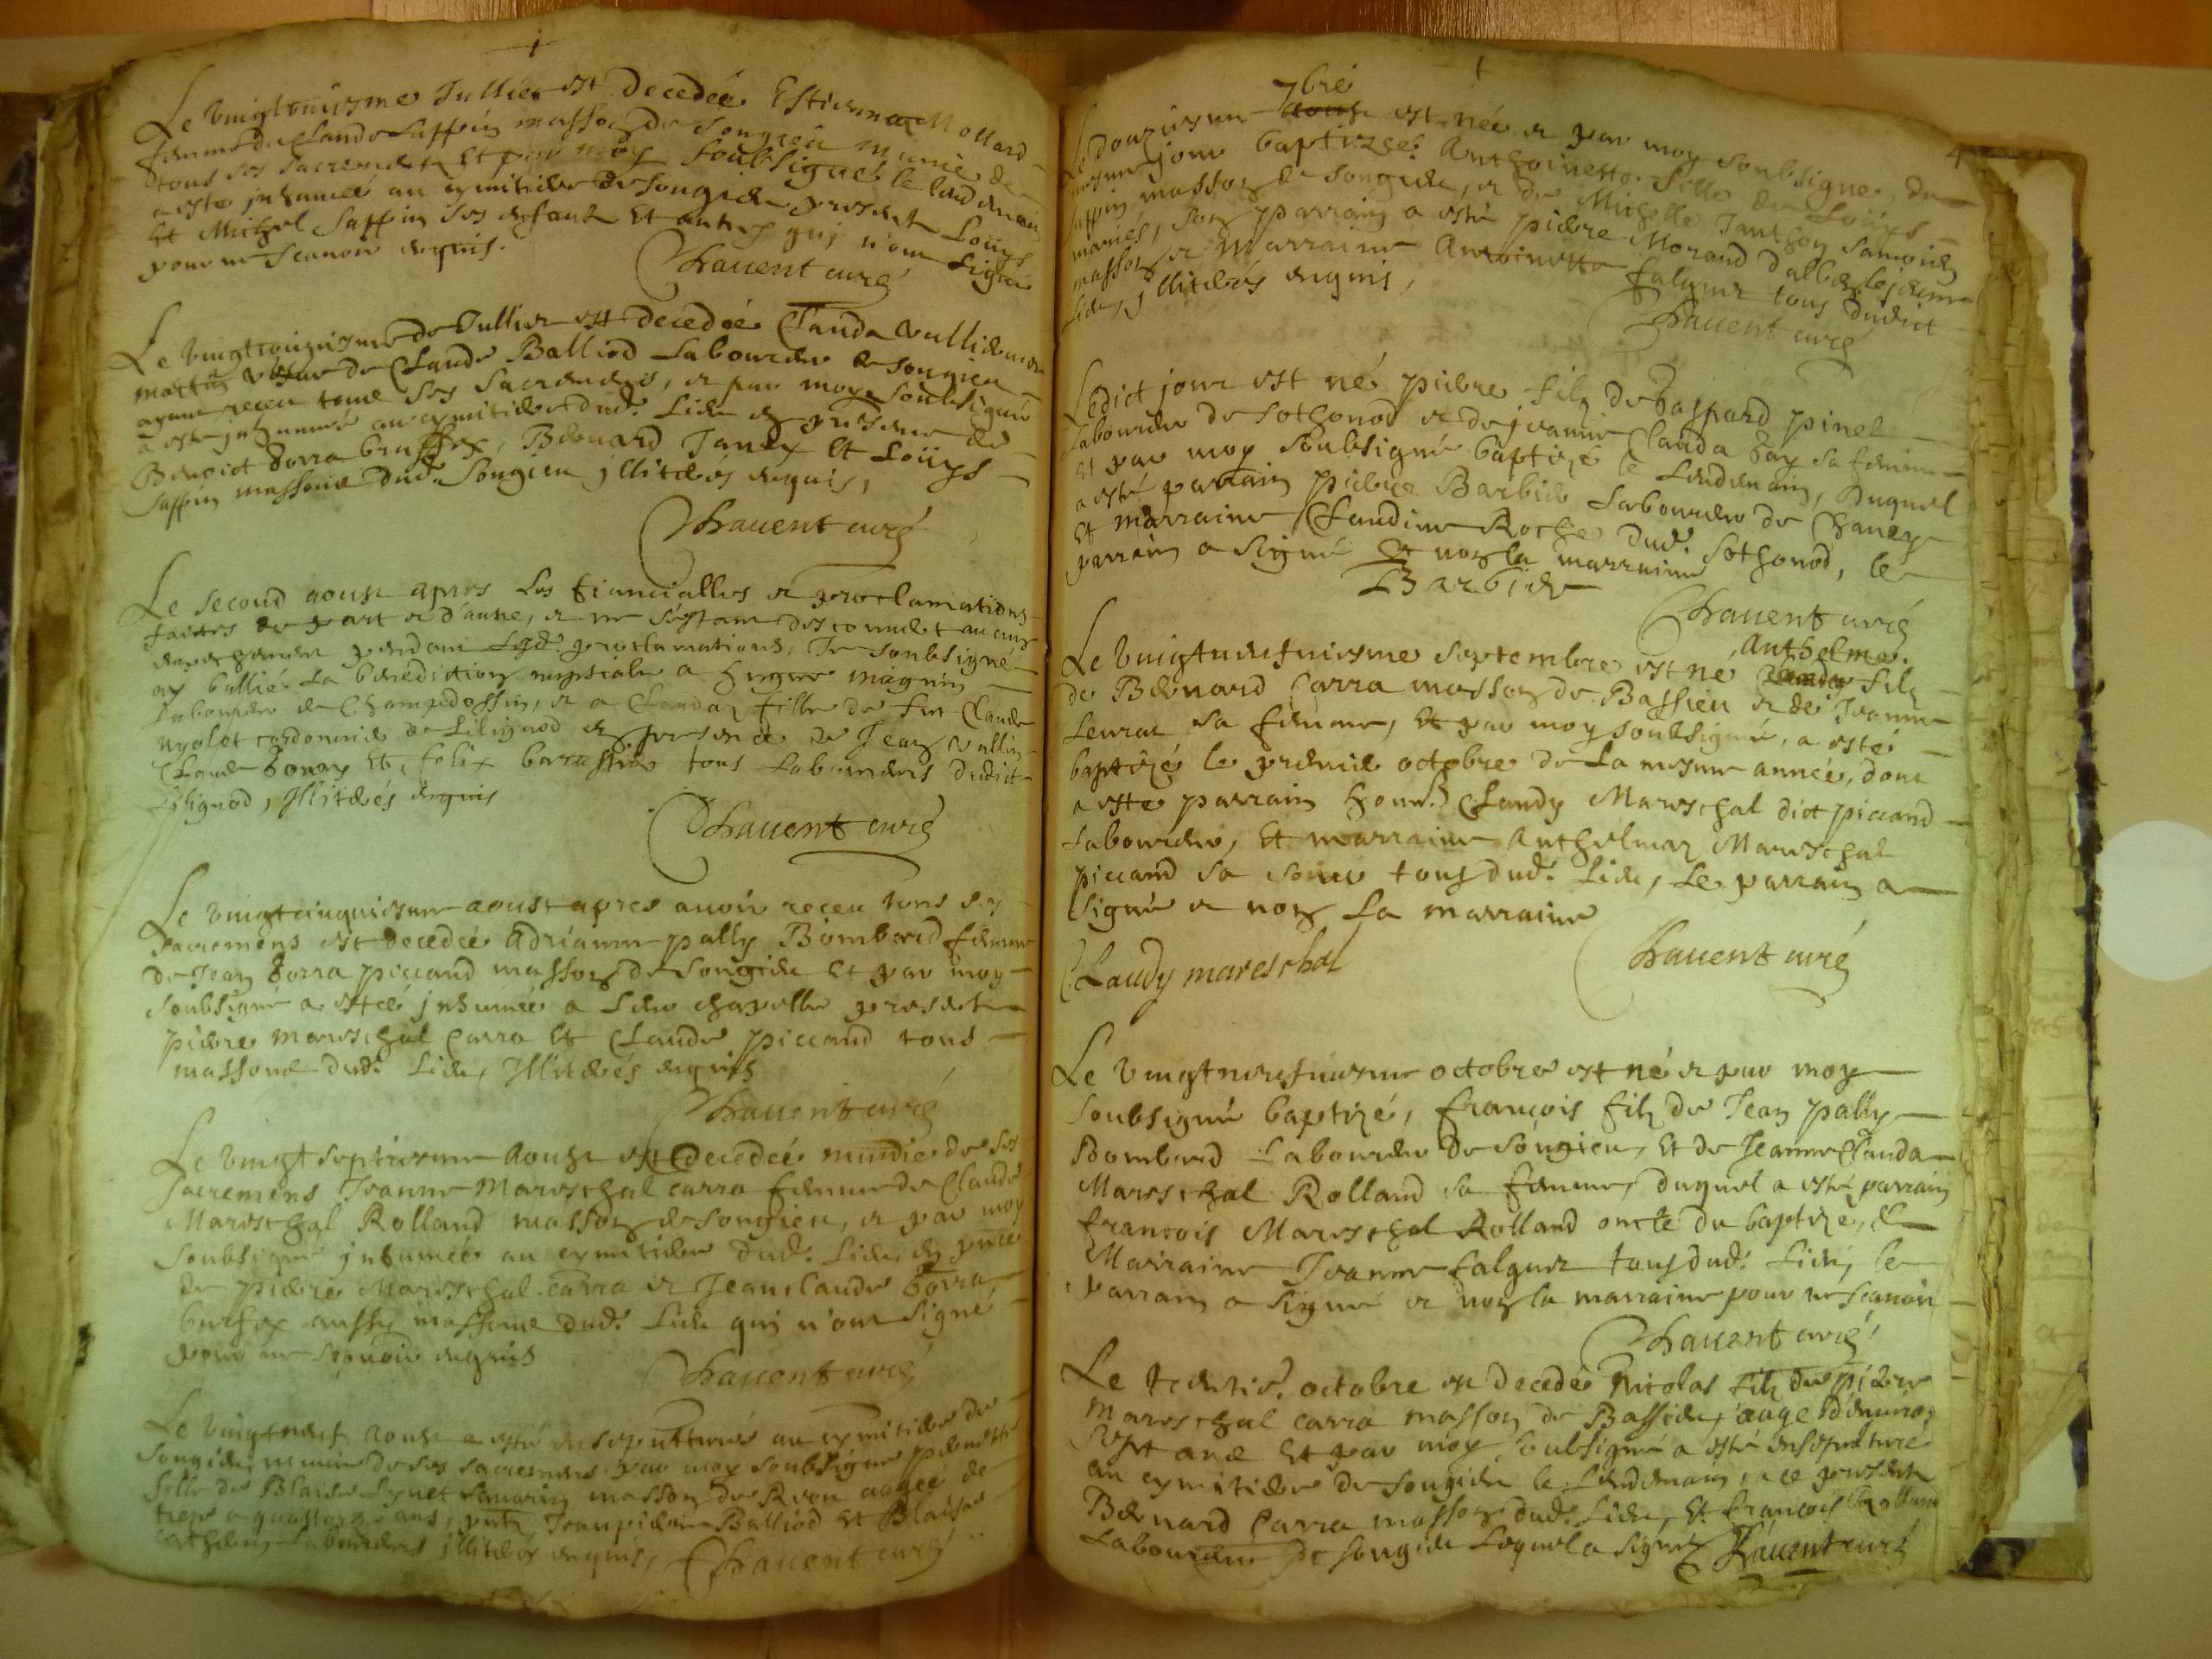 Le vingtuniesme Jullier est decedée Estiennaz Mollard
femme de Claude Saffin masson de Songieu munie de
tous ses sacrements et par moy soubsigné le lendemain
a esté inhumée au cymitiere de Songieu presents Louys
et Michel Saffin ses enfants et autres qui n'ont signé
pour ne scavoir enquis.
Chavent curé
Le vingtroiziesme de Jullier est decedée Clauda Vulliermoz
martin vefve de Claude Balliod laboureur de Songieu
ayant receu tous ses sacrements, et par moy soubsigné
a esté inhumée au cymitiere dud. lieu en presence de
Benoict Borra, Bernard Jantez et Louys
Saffin massons dud. Songieu illiterés enquis,
Chavent curé
Le second aoust apres les fiancialles et proclamations
faictes de part et d'autre, et ne s'estant descouvert aucung
empeschement pendant lesd. proclamations, Je soubsigné
ay ballié la benediction nuptiale a hugue magnin
laboureur de Champdossin, et a Clauda fille de feu Claude
nyolot cordonnie de Lilignod en presence de Jean Vullin
Claude bonay et felix barassin tous laboureurs dudict
Lilignod, Illiterés enquis
Chavent curé
Le vingtcinquiesme aoust apres avoir receu tous ses
sacremens est decedée Adrianne pally Bomberd femme
de Jean Borra piccand masson de Songieu et par moy
soubsigné a esteé inhumée a leur chapelle presents
pierre mareschal Carra et Claude piccand tous
massons dud. lieu, Illiterés enquis
Chavent curé
Le vingt septiesme Aoust est decedeé munie de ses
sacremens Jeanne Mareschal carra femme de Claude
Mareschal Rolland masson de Songieu, et par moy
soubsigné inhumée au cymitiere dud. lieu en pnce
de pierre Mareschal carra et Jeanclaude Borra
aussy massons dud. lieu qui n'ont signé
pour ne scavoir enquis
Chavent curé
Le vingtneuf Aoust a esté ensepulturée au cymitiere de
Songieu munie de ses sacremens par moy soubsigné pernette
fille de Blaise Lynet Savarin masson de Reou aagée de
treze a quattorze ans, pnts Jeanpierre Balliod et Blaise
laboureurs illiterés enquis, Chavent curé
7bre
Le douziesme aoust est neé et par moy soubsigné, du
mesme jour baptizeé Anthoinette fille de Louys
saffin masson de Songieu, et de Michelle Janthon Samoien
mariés, son parrain a esté pierre Morand dalbert le jeune
masson et marraine Antoinette falguet tous dudict
lieu, illiterés enquis,
Chavent curé
Ledict jour est né pierre filz de Gaspard pinel
laboureur de Sothonod et de jeanne Clauda Fay sa femme
et par moy soubsigné baptizé le lendemain, duquel
a esté parrain pierre Barbier laboureur de Chanay
et marraine Claudine Roche dud. Sothonod, le
parrain a signé et non la marraine
Barbier
Chavent curé
Anthelme.
Le vingtneufviesme septembre est né filz
de Bernard Carra masson de Bassieu et de Jeanne
Leurat sa femme, et par moy soubsigné, a esté
baptizé le premier octobre de la mesme année, dont
a este parrain honn. Claudy Mareschal dict piccand
laboureur, et marraine Anthelmaz Mareschal
piccand sa soeur tous dud. lieu, Le parrain a
signé et non la marraine
Claudy mareschal
Chavent curé
Le vingtneufviesme octobre est né et par moy
soubsigné baptizé, françois filz de Jean pally
Bomberd laboureur de Songieu, et de Jeanne Clauda
Mareschal Rolland sa femme, duquel a esté parrain
françois Mareschal Rolland oncle du baptizé, et
Marraine Jeanne falguet tous dud. lieu, le
parrain a signé et non la marraine pour ne scavoir
Chavent curé
Le trentie. octobre est decedé Nicolas filz de pierre
Mareschal carra masson de Bassieu, aagé d'environ
sept ans et par moy soubsigné a esté ensepulturé
au cymitiere de Songieu le lendemain, a ce presents
Bernard Carra masson dud. lieu, et francois Rolland
laboureur de songieu lequel a signé Chavent curé